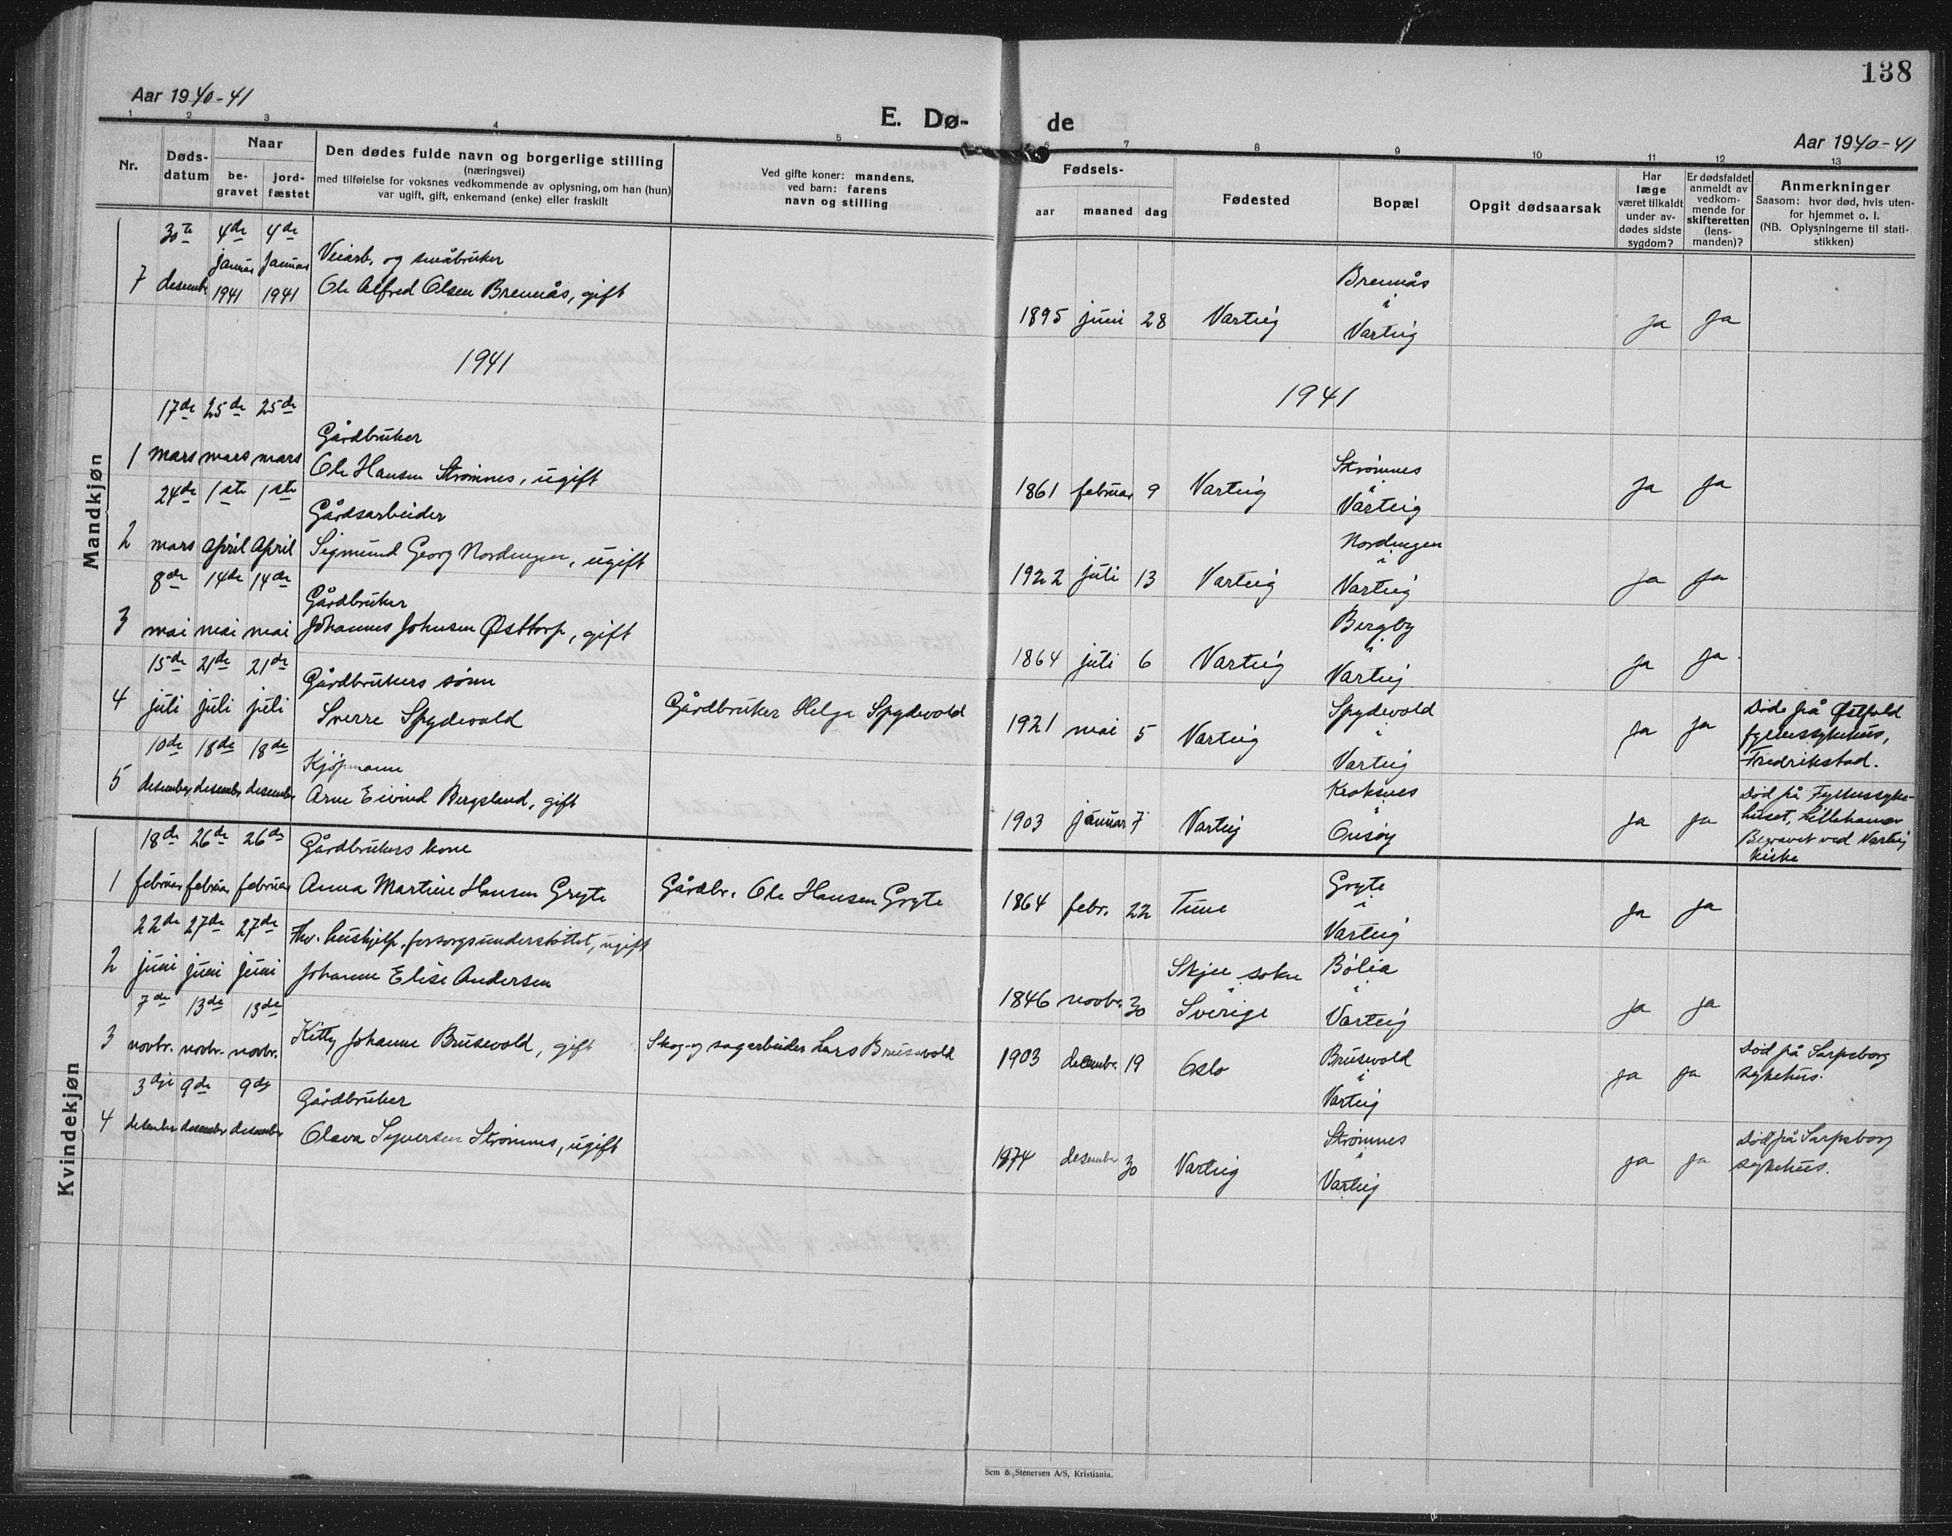 138
Aar 1940-41
E. Dø-
de
Aar 1940-41
1 2 3 4 5 6 7 8 9 10 11 12 13
Nr.
Døds-
datum
Naar
be-
gravet
jord-
fæstet
Den dødes fulde navn og borgerlige stilling
(næringsvei)
med tilføielse for voksnes vedkommende av oplysning, om han (hun)
var ugift, gift, enkemand (enke) eller fraskilt
Ved gifte koner: mandens,
ved barn: farens
navn og stilling
Fødsels-
aar maaned dag
Fødested
Bopæl
Opgit dødsaarsak
Har
læge
været tilkaldt
under av-
dødes sidste
sygdom?
Er dødsfaldet
anmeldt av
vedkom-
mende for
skifteretten
(lens-
manden)?
Anmerkninger
Saasom: hvor død, hvis uten-
for hjemmet o. l.
(NB. Oplysningerne til stati-
stikken)
Mandkjøn
30te 4de 4de
januar januar
7 desembr 1941 1941
Veiarb. og småbruker
Ole Alfred Olsen Brennås, gift
1895 juni 28 Varteig
Brennås
i
Varteig
ja ja
1941
1941
17de 25de 25de
1 mars mars mars
Gårdbruker
Ole Hansen Strømnes, ugift
1861 februar 9 Varteig
Strømnes
i
Varteig
ja ja
24de 1ste 1ste
2 mars April April
Gårdsarbeider
Sigmund Georg Nordengen, ugift
1922 juli 13 Varteig
Nordengen
i
Varteig
ja ja
8de 14de 14de
3 mai mai mai
Gårdbruker
Johannes Johnsen Østtorp, gift
1864 juli 6 Varteig
Bergby
i
Varteig
ja ja
15de 21de 21de
4 juli juli juli
Gårdbrukers sønn
Sverre Spydevold
Gårdbruker Helge Spydevold
1921 mai 5 Varteig
Spydevold
i
Varteig
ja ja
Død på Østfold
fylkessykehus,
Fredrikstad.
10de 18de 18de
5 desember desember desember
Kjøpmann
Arne Eivind Bergsland, gift
1903 januar 7 Varteig
Kroksnes
i
Onsøy
ja ja
Død på Fylkessyke-
huset, Lillehamar
Begravet ved Varteig
kirke
Kvindekjøn
18de 26de 26de
1 februar februar februar
Gårdbrukers kone
Anna Martine Hansen Gryte
Gårdbr. Ole Hansen Gryte
1864 febr. 22 Tune
Gryte
i
Varteig
ja ja
22de 27de 27de
2 juni juni juni
Fhv. hushjelp, forsorgsunderstøttet, ugift
Johanne Elise Andersen
1846 novbr. 30
Skjee sokn
i
Sverige
Bølia
i
Varteig
ja ja
7de 13de 13de
3 novbr. novbr. novbr.
Kitty Johanne Brusevold, gift
Skog- og sagarbeider Lars Brusevold
1903 decembr. 19 Oslo
Brusevold
i
Varteig
ja ja
Død på Sarpsborg
sykehus.
3dje 9de 9de
4 desember desember desember
Gårdbruker
Olava Syversen Strømnes, ugift
1874 desember 30 Varteig
Strømnes
i
Varteig
ja ja
Død på Sarpsborg
sykehus.
Sem & Stenersen A/S, Kristiania.